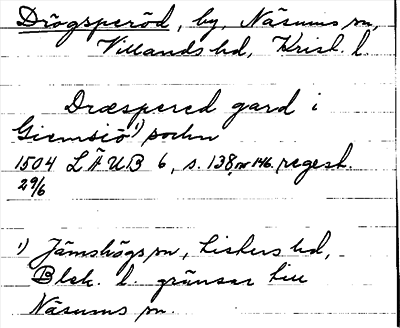 Drögsperöd, by, Näsums sn,
Villands hd, Krist. l.
Dræspered gard i
Giemsiö ¹) sochn
1504 LÄUB 6, s. 138, nr 146. regest.
29/6
¹) Jämshögs sn, Listers hd,
Blek. l. gränsar till
Näsums sn.